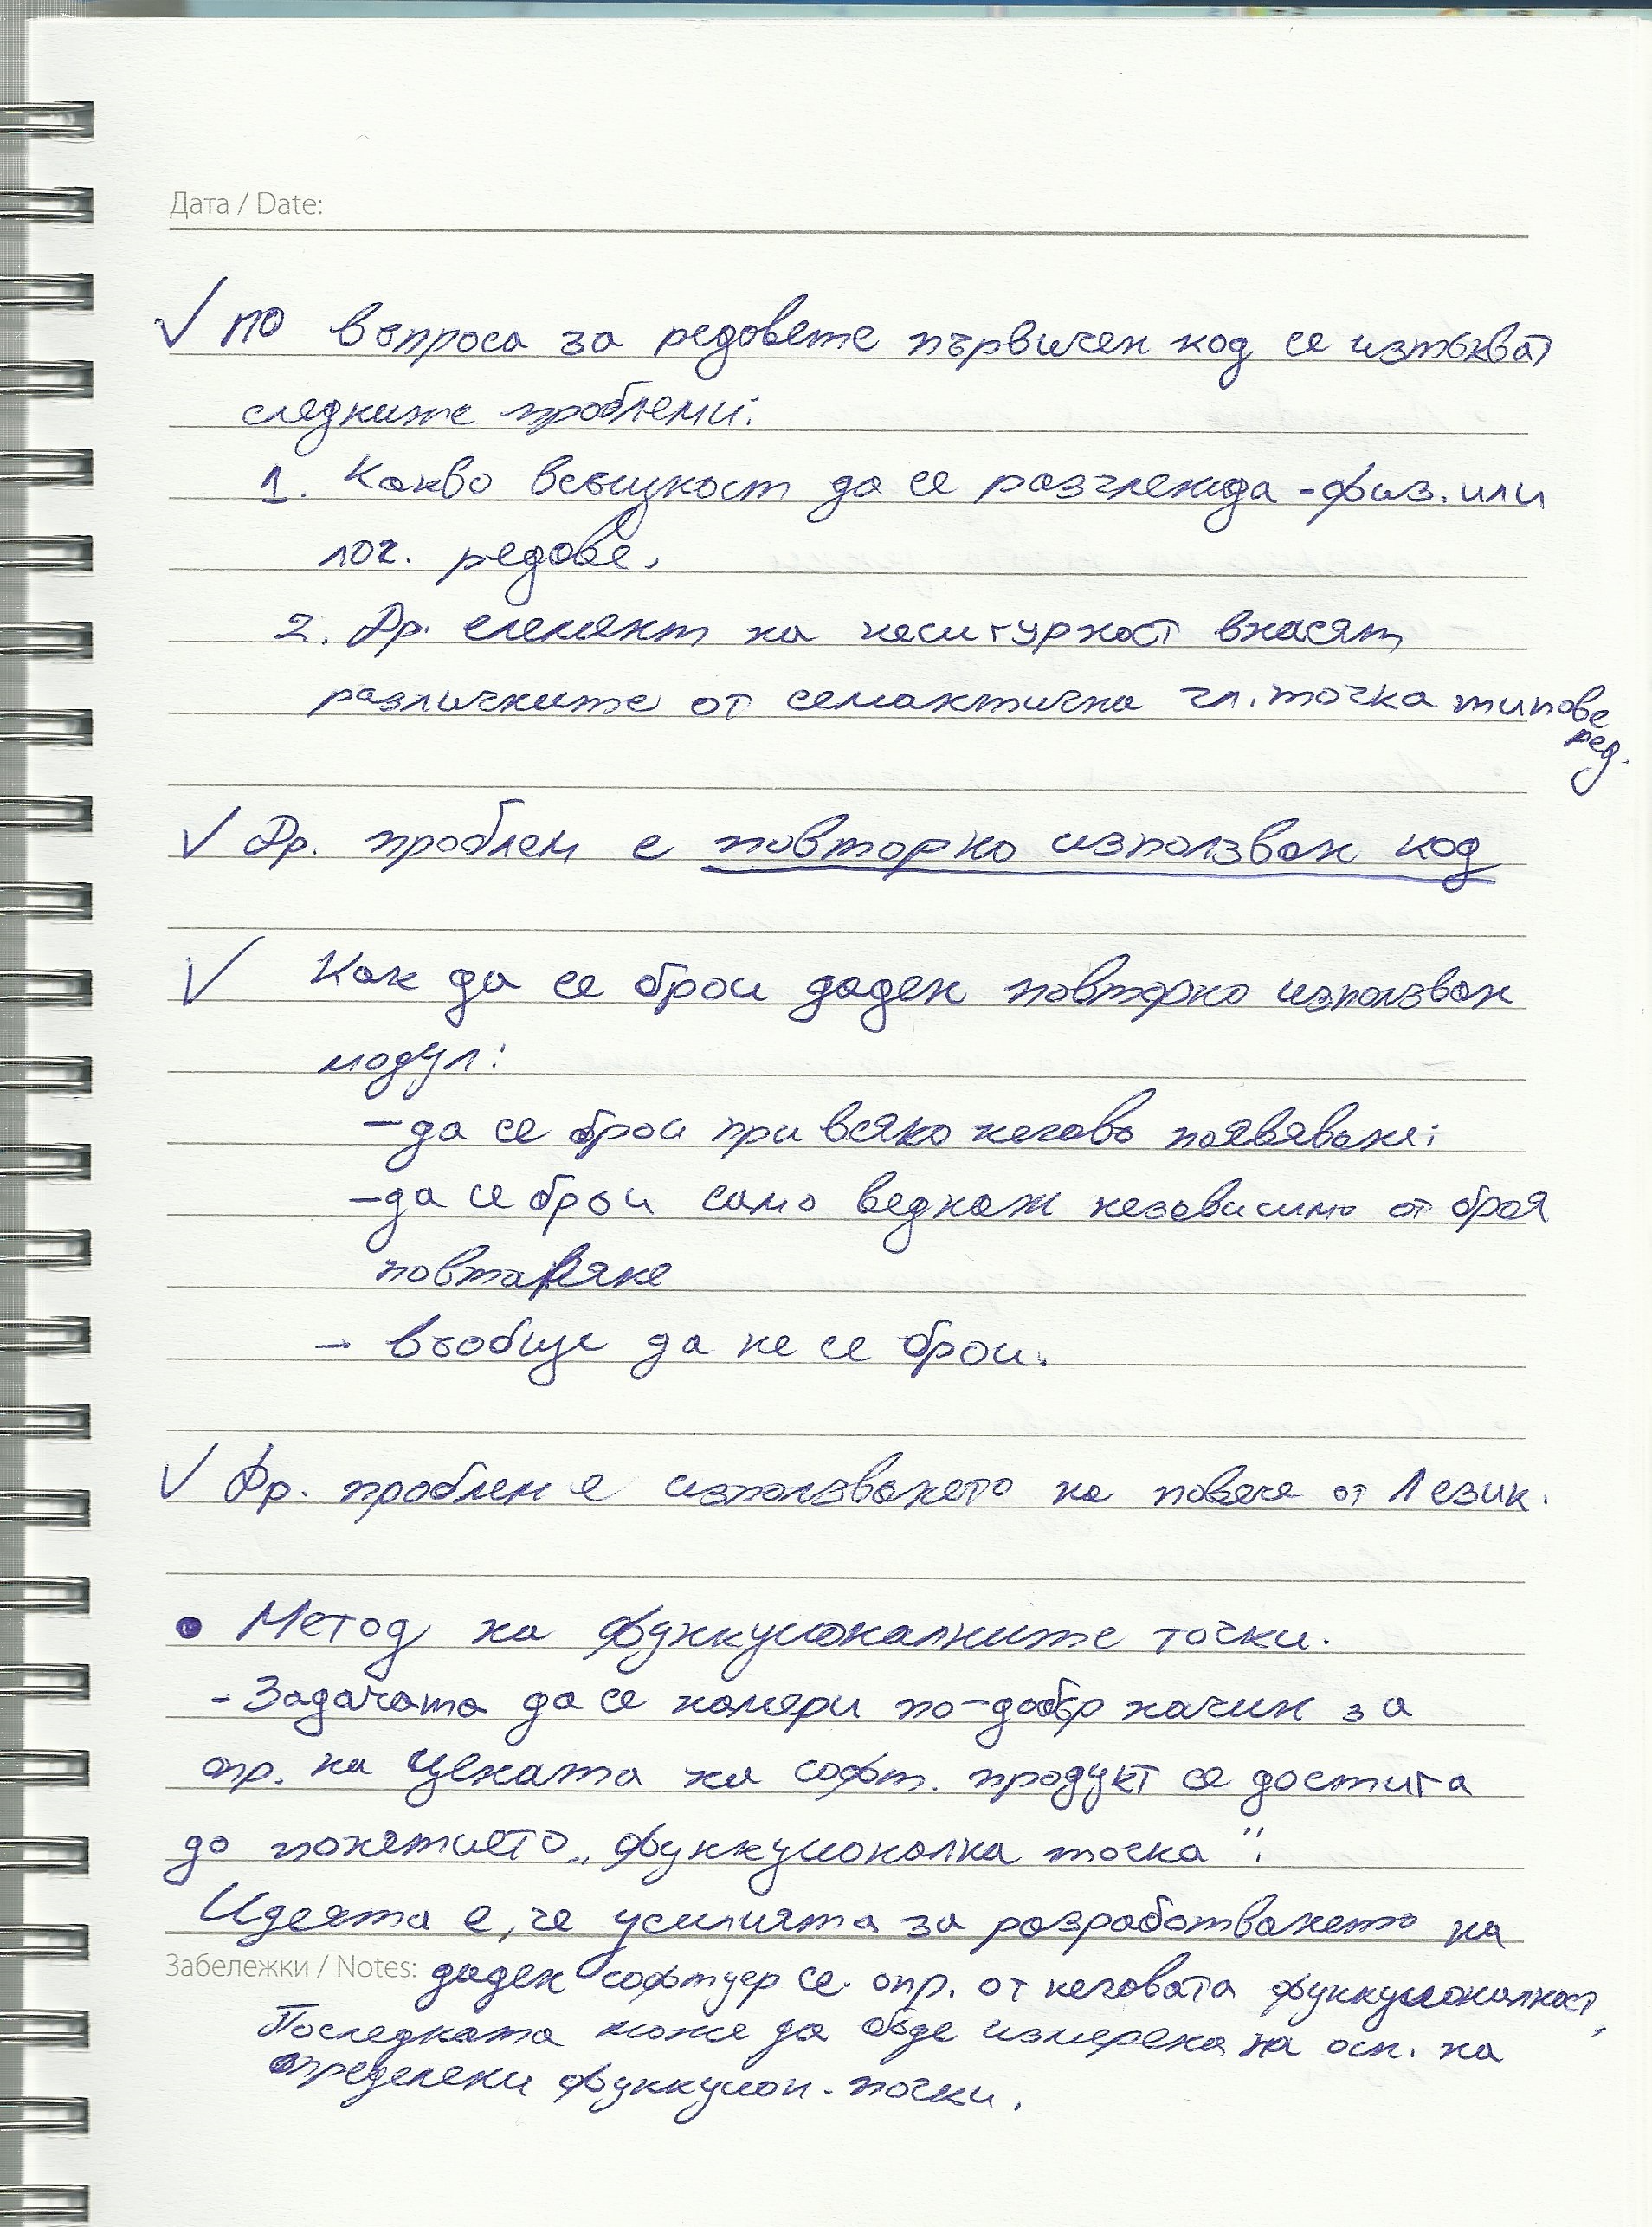 Дата / Date:
✓ ПО въпроса за редовете първичен код се изтъкват
следните проблеми:
1. Какво всъщност да се разглежда - физ. или
лог. редове.
2. Др. елемент на несигурност внасят
различните от семантична гл. точка типове
ред.
✓ Др. проблем е повторно използван код
✓ Как да се брои даден повторно използван
модул:
- да се брои при всяко негово появяване;
- да се брои само веднаж независимо от броя
повтаряне
- въобще да не се брои.
✓ Др. проблем е използването на повече от 1 език.
• Метод на функционалните точки.
- Задачата да се намери по-добър начин за
опр. на цената на софт. продукт се достига
до понятието „функционална точка".
Идеята е, че усилията за разработването на
Забележки / Notes: даден софтуер се опр. от неговата функционалност,
Последната може да бъде измерена на осн. на
определени функцион. точки.